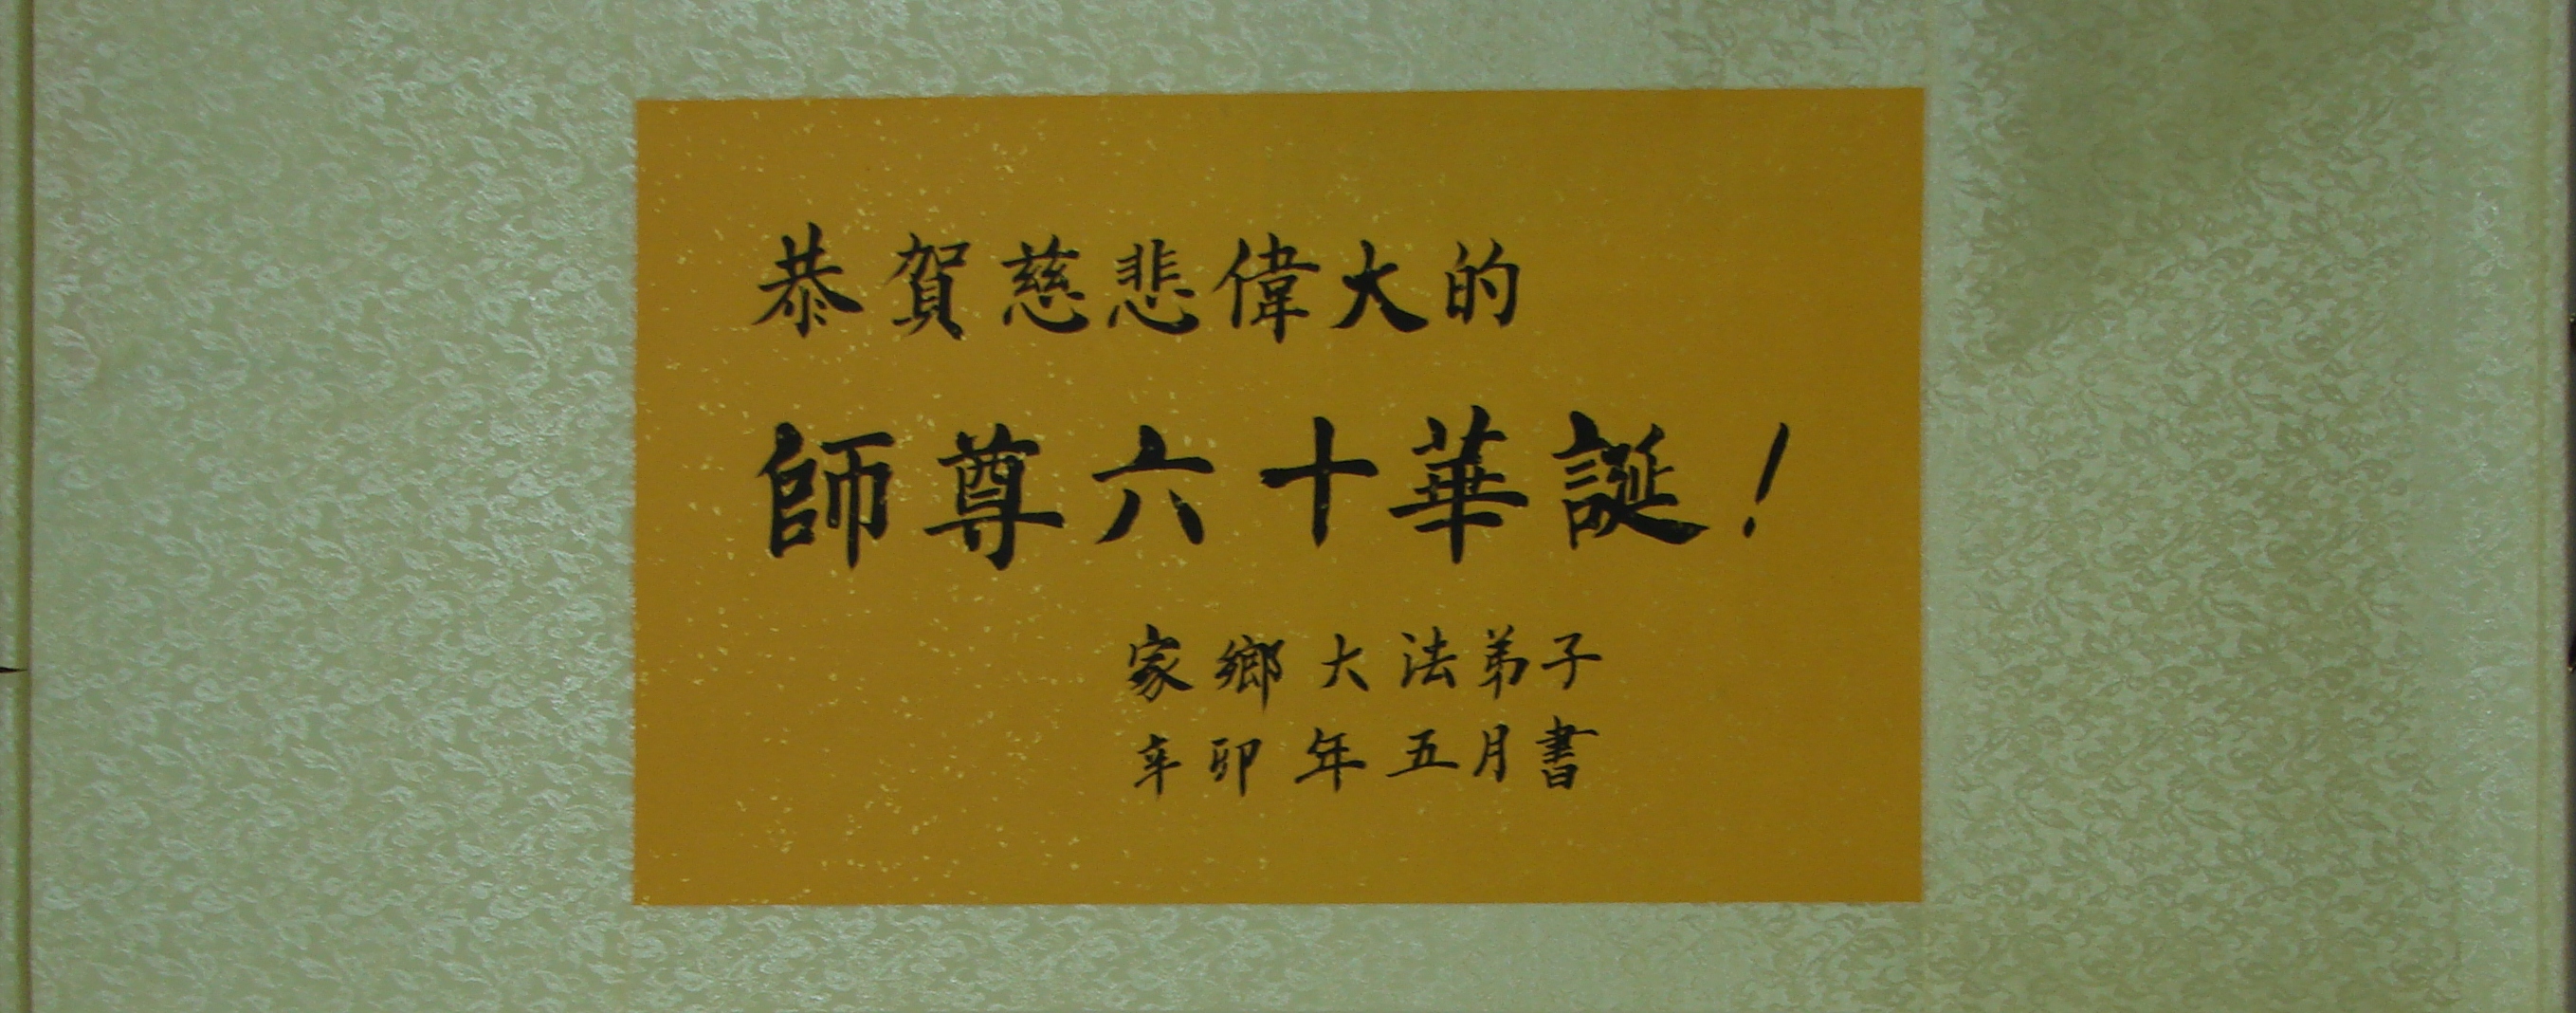 恭賀慈悲偉大的
師尊六十華誕！
家鄉大法弟子
辛卯年五月書